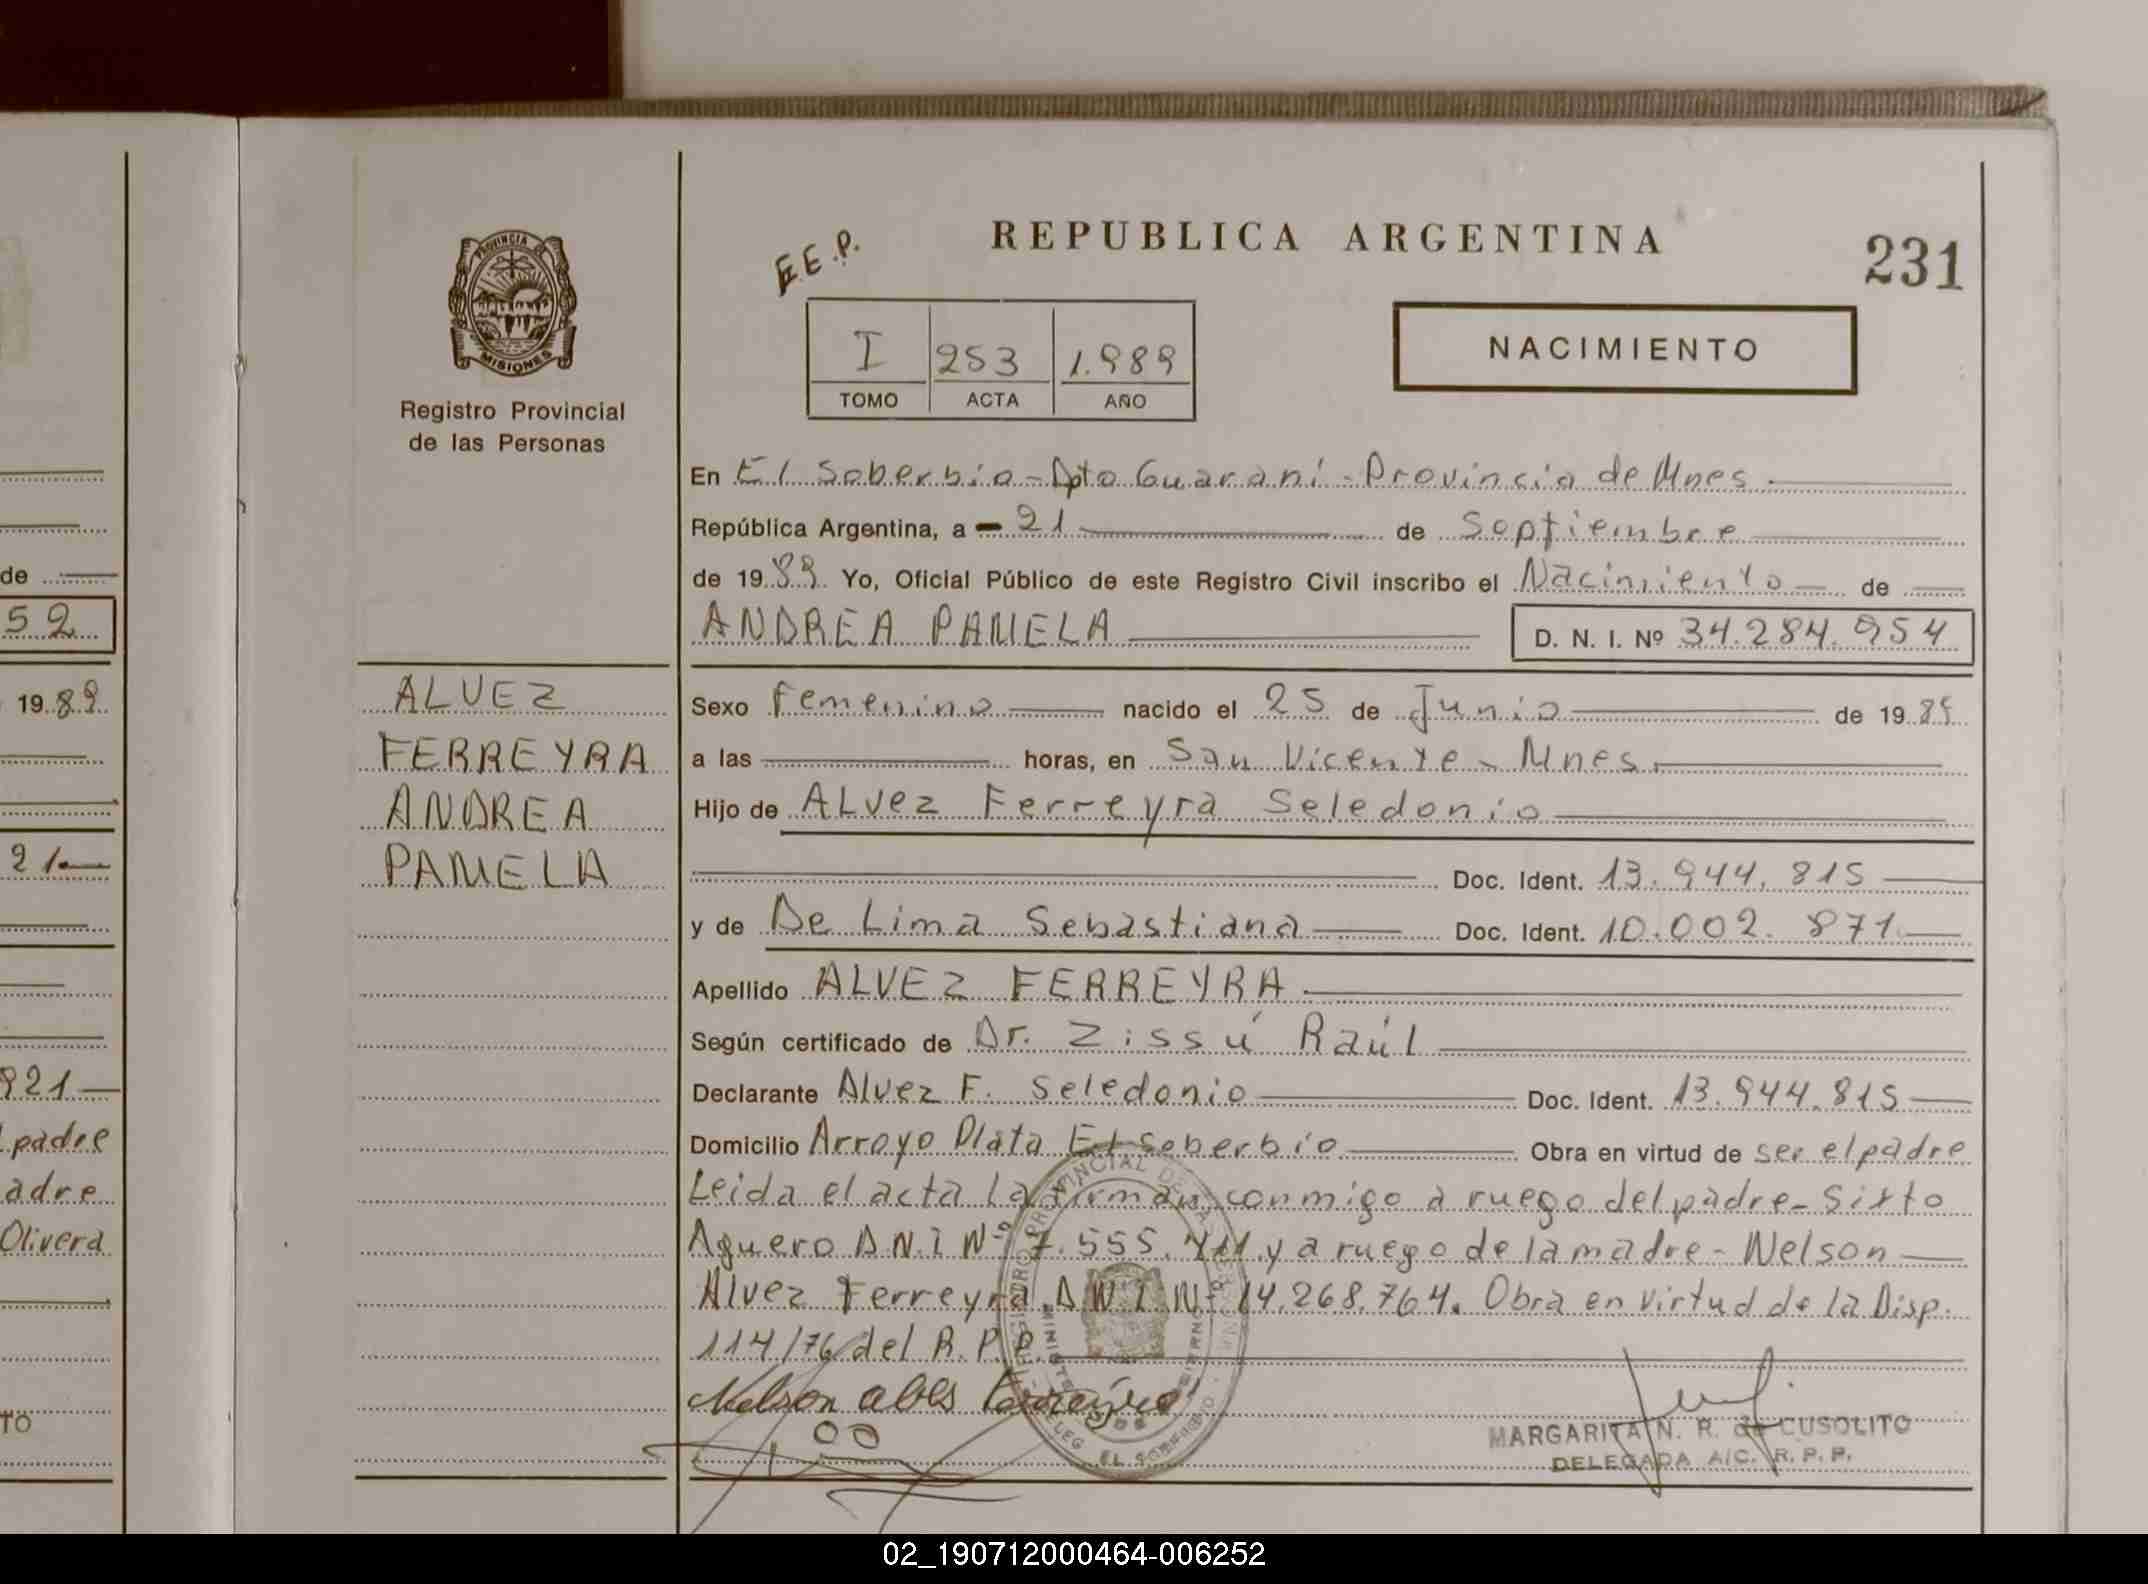 REPUBLICA ARGENTINA
231
E.E.P.
I 253 1.989
TOMO ACTA AÑO
NACIMIENTO
PROVINCIA
MISIONES
Registro Provincial
de las Personas
En El Soberbio - Dpto Guaraní - Provincia de Mnes
República Argentina, a - 21 de Septiembre
de 1989 Yo, Oficial Público de este Registro Civil inscribo el Nacimiento de
ANDREA PAMELA D. N. I. Nº 34.284.954
ALVEZ
FERREYRA
ANDREA
PAMELA
Sexo femenino nacido el 25 de Junio de 19
a las horas, en San Vicente - Mnes.
Hijo de ALvez Ferreyra Seledonio
Doc. Ident. 13.944.815
y de De Lima Sebastiana Doc. Ident. 10.002.871
Apellido ALVEZ FERREYRA
Según certificado de Dr. Zissú Raúl
Declarante Alvez F. Seledonio Doc. Ident. 13.944.815
Domicilio Arroyo Plata El Soberbio Obra en virtud de ser el padre
Leida el acta la firman conmigo a ruego del padre - Sixto
Aguero D.N.I Nº 7.555. y a ruego de la madre - Nelson
Alvez Ferreyra D.N.I. Nº 14.268.764. Obra en virtud de la Disp.
114/76 del R.P.P.
Nelson
MARGARITA N. R. de CUSOLITO
DELEGADA A/C. R. P. P.
de
52
1989
21
921
padre
adre
Olivera
TO
02_190712000464-006252